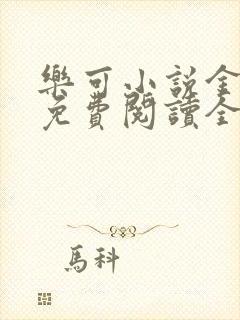 樂可小說全
免費閱讀全
馬科